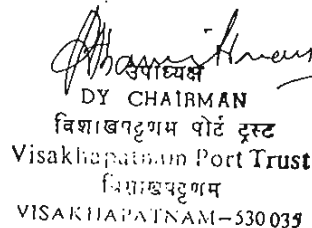 उपाध्यक्ष
DY CHAIRMAN
विशाखपट्टणम पोर्ट ट्रस्ट
Visakhapatnam Port Trust
विशाखपट्टणम
VISAKHAPATNAM-530035